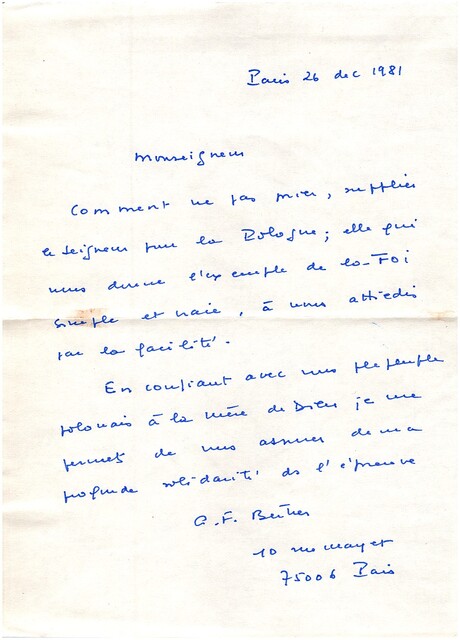 Paris 26 dec 1981
Monseigneur
Comment ne pas prier, supplier
le Seigneur pour la Pologne; elle qui
nous donne l'exemple de la Foi
simple et vraie, à nous attiedis
par la facilité.
En confiant avec vous le peuple
polonais à la mère de Dieu je me
permets de vous assurer de ma
profonde solidarité ds l'épreuve
75006 Paris